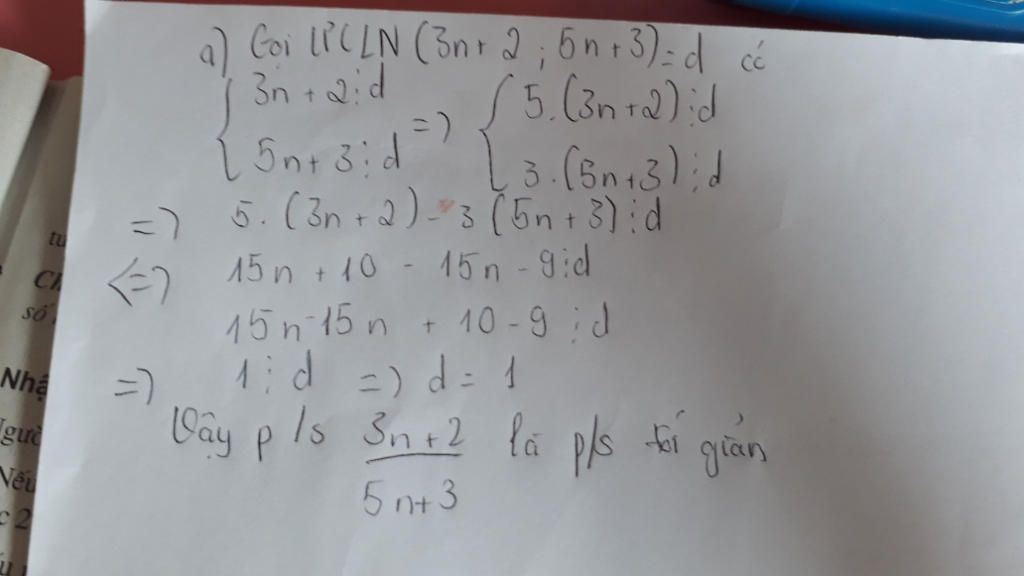 a) Gọi ƯCLN (3n+2 ; 5n+3) = d có
3n + 2 ⋮ d
5n + 3 ⋮ d
=>
5.(3n+2) ⋮ d
3.(5n+3) ⋮ d
=> 5.(3n+2) - 3(5n+3) ⋮ d
<=> 15n + 10 - 15n - 9 ⋮ d
15n - 15n + 10 - 9 ⋮ d
=> 1 ⋮ d => d = 1
Vậy p/s 3n+2 là p/s tối giản
5n+3
tu
số
Nhậ
Ngườ
Nếu
c 2